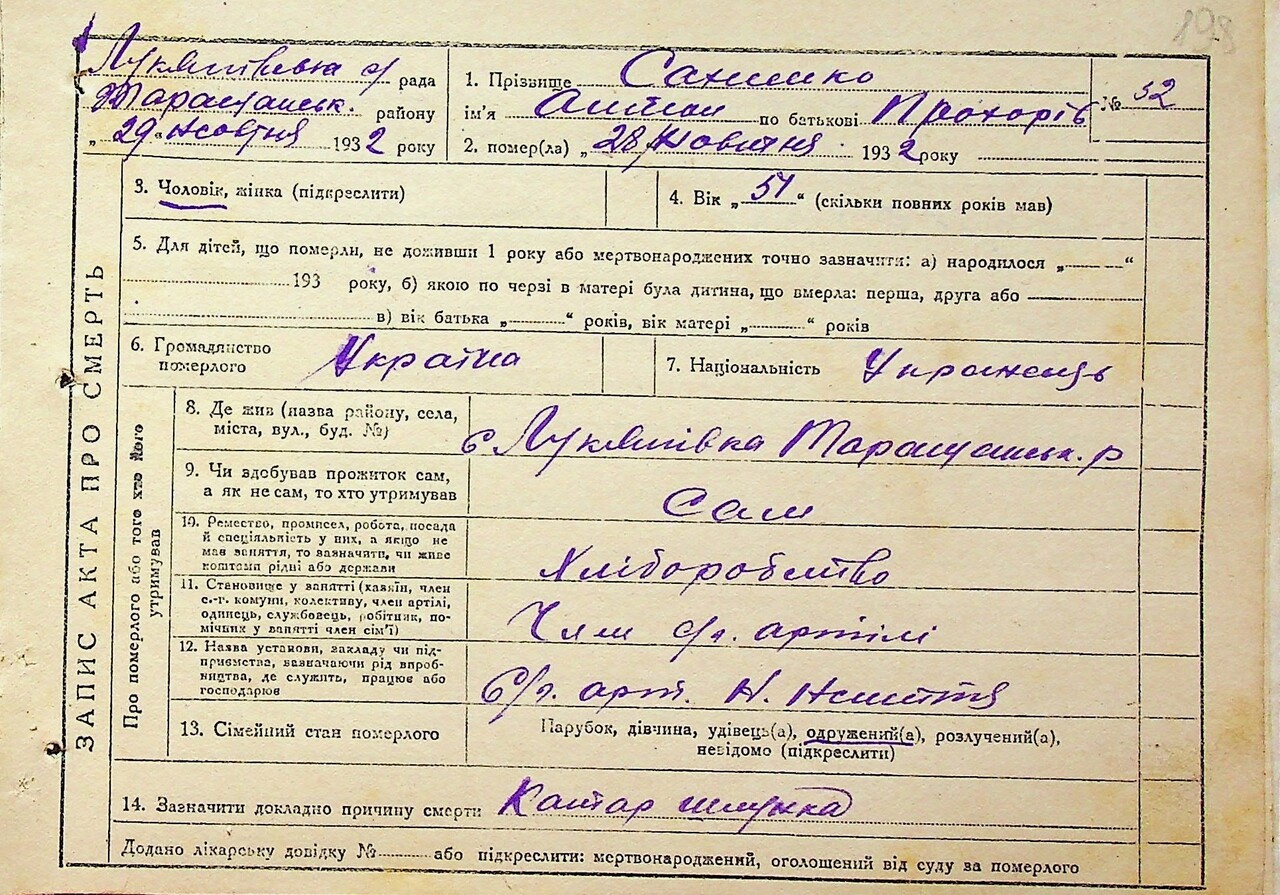 198
Лукяшівська с/ рада
Таращанськ. району
„ 29 " жовтня 1932 року
1. Прізвище Сахненко
ім'я по батькові Прохорів
2. помер(ла) „ 28 " жовтня 1932 року
№ 32
ЗАПИС АКТА ПРО СМЕРТЬ
3. Чоловік, жінка (підкреслити)
4. Вік „ 51 " (скільки повних років мав)
5. Для дітей, що померли, не доживши 1 року або мертвонароджених точно зазначити: а) народилося „ "
193 року, б) якою по черзі в матері була дитина, що вмерла: перша, друга або
в) вік батька „ " років, вік матері „ " років
6. Громадянство
померлого
Україна
7. Національність Українець
Про померлого або того хто його
утримував
8. Де жив (назва району, села,
міста, вул., буд. №)
с Лукяшівка Таращанськ. р
9. Чи здобував прожиток сам,
а як не сам, то хто утримував
Сам
10. Ремество, промисел, робота, посада
й спеціяльність у них, а якщо не
мав заняття, то зазначити, чи живе
коштами рідні або держави
Хліборобство
11. Становище у занятті (хазяїн, член
с.-г. комуни, колективу, член артілі,
одинець, службовець, робітник, по-
мічник у занятті член сім'ї)
Член с/г. артілі
12. Назва установи, закладу чи під-
приємства, зазначаючи рід вироб-
ництва, де служить, працює або
господарює
С/г. арт. Н. Життя
13. Сімейний стан померлого
Парубок, дівчина, удівець(а), одружений(а), розлучений(а),
невідомо (підкреслити)
14. Зазначити докладно причину смерти Катар шлунка
Додано лікарську довідку № або підкреслити: мертвонароджений, оголошений від суду за померлого